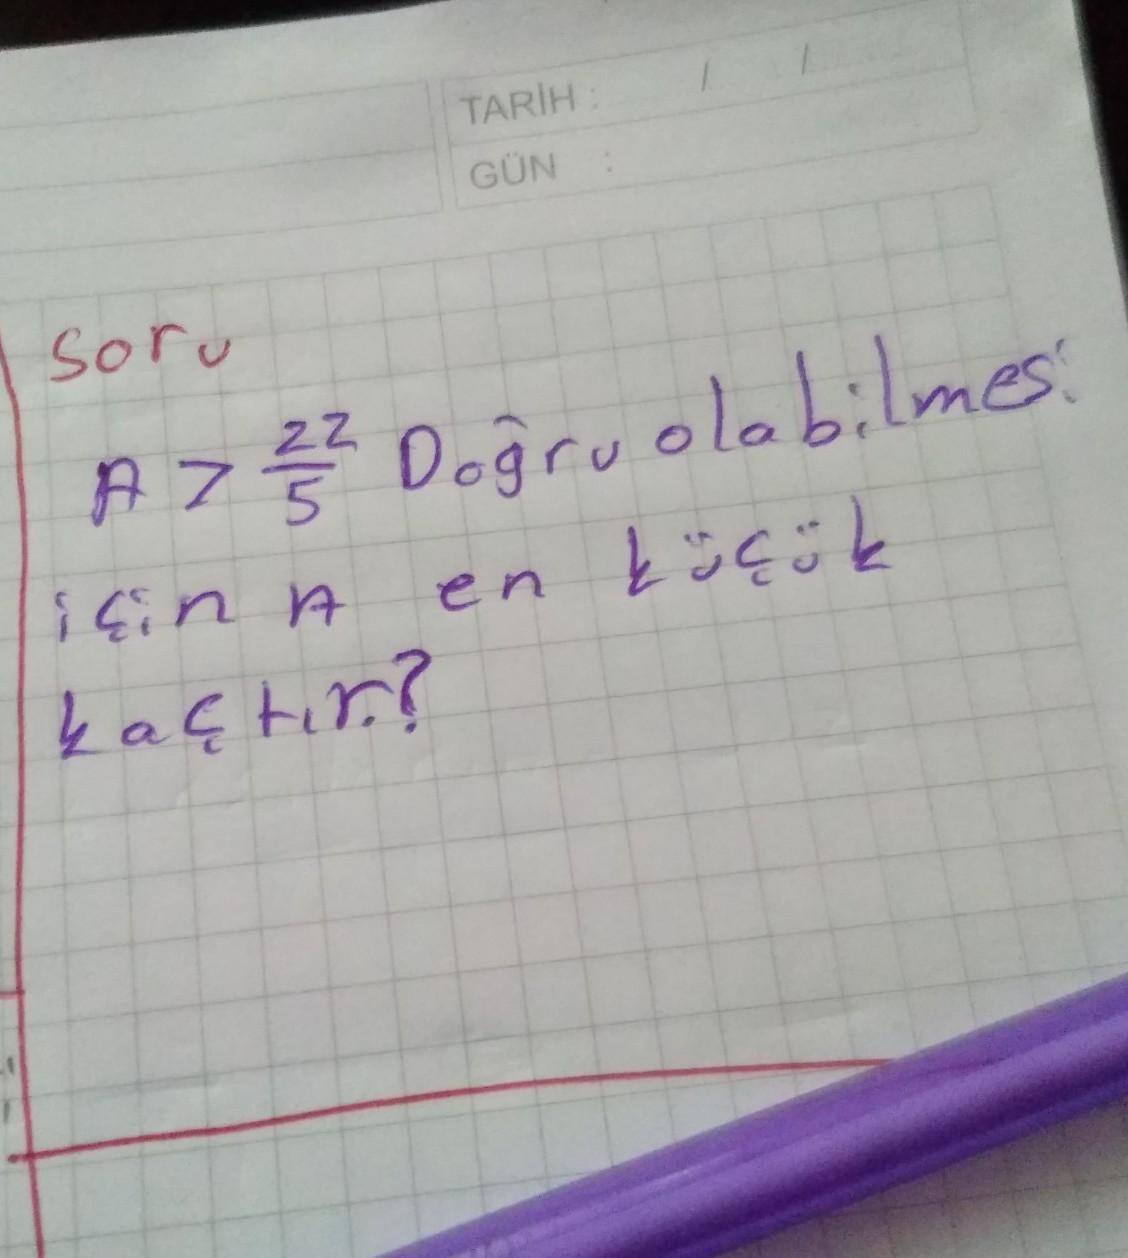 TARİH : / /
GÜN :
Soru
A > 22/5 Doğru olabilmesi
için A en küçük
kaçtır.?